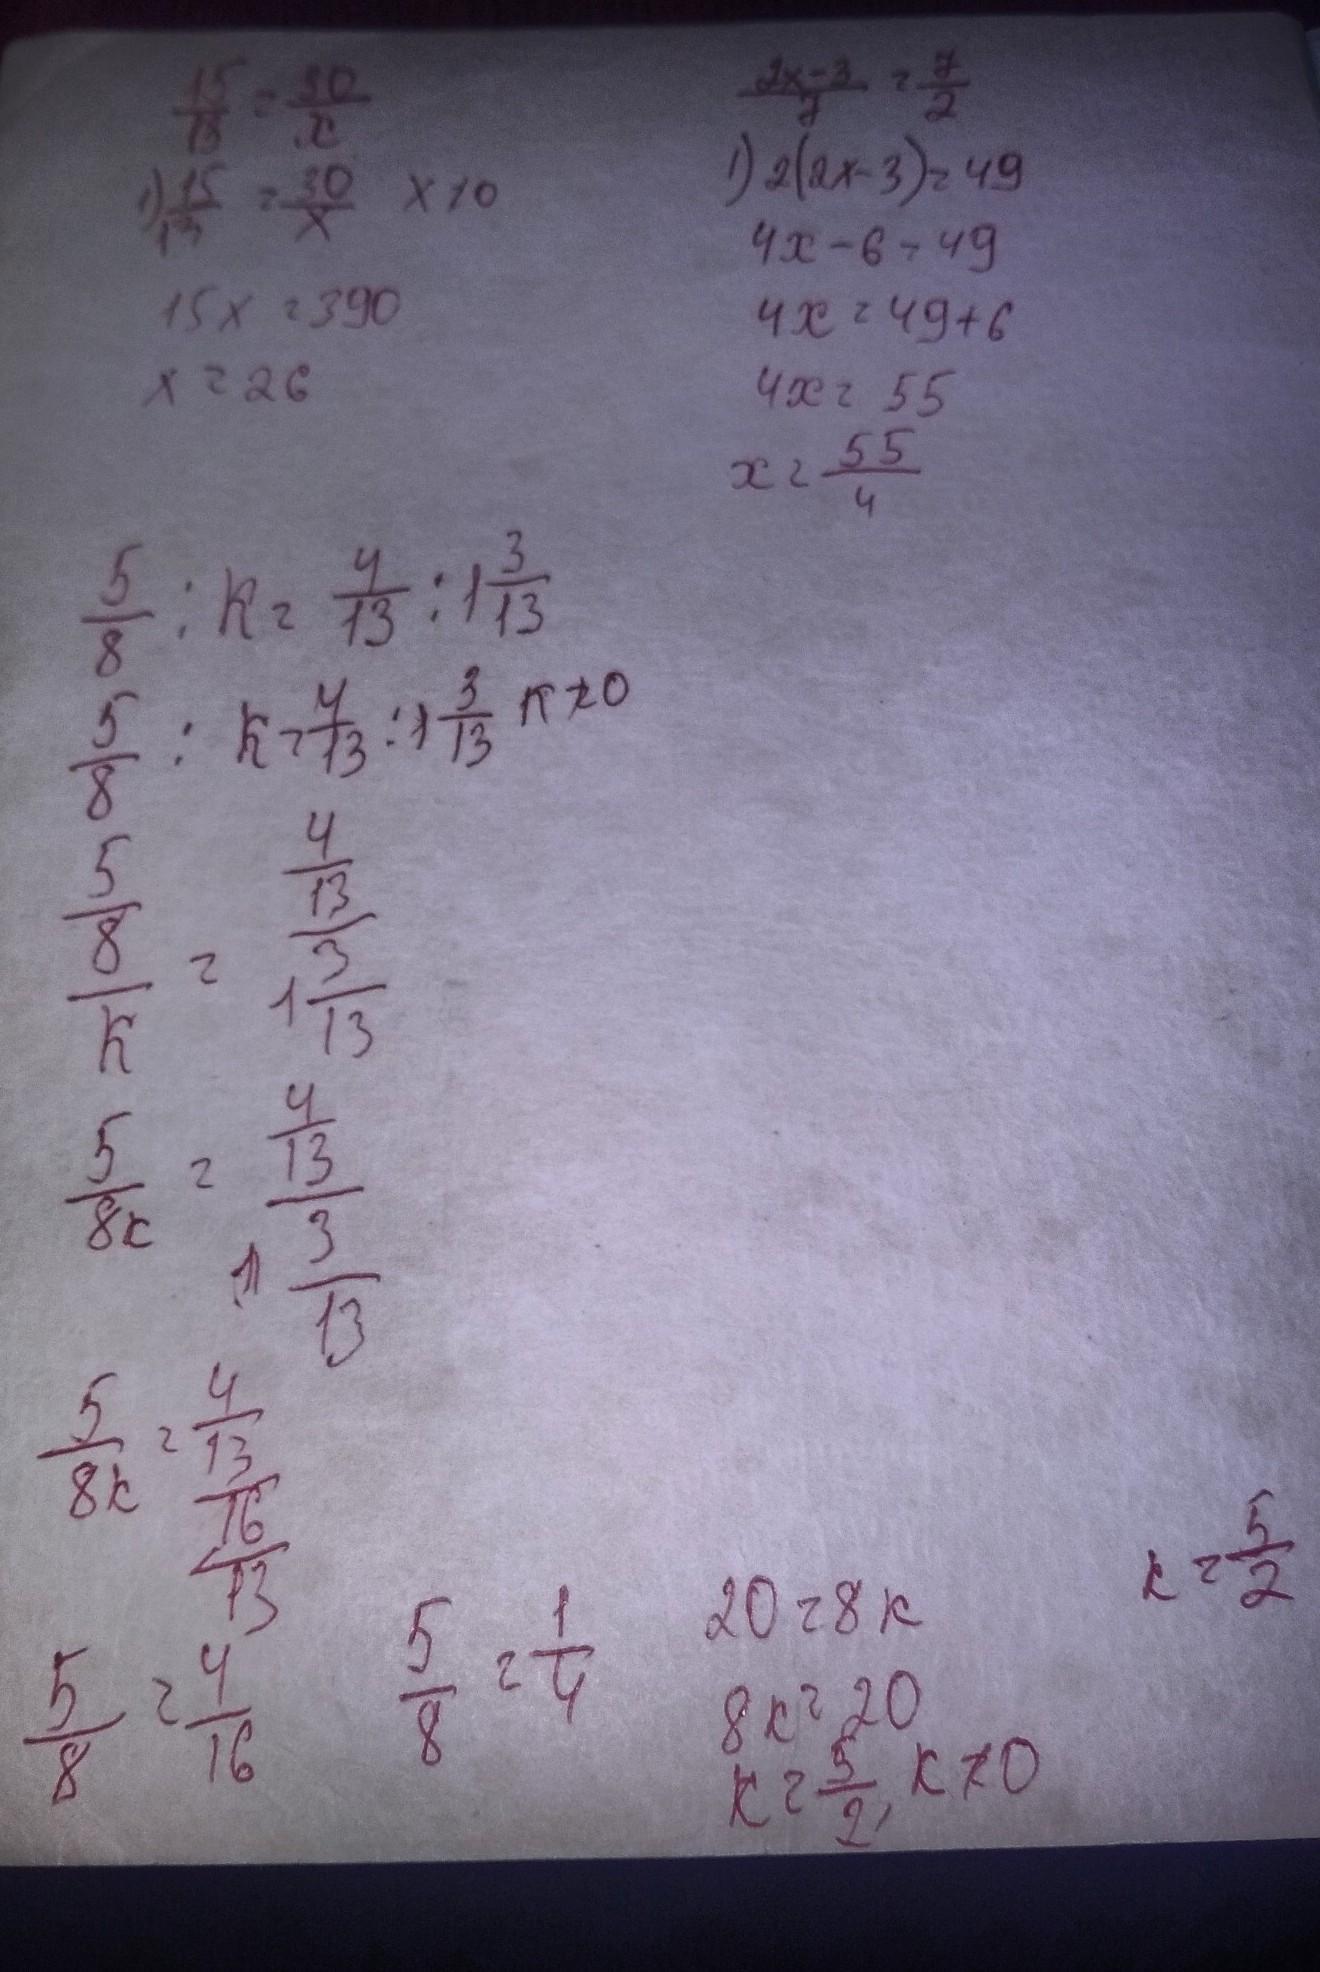 15/13 = 30/x
1) 15/13 = 30/x x≠0
15x = 390
x = 26
2x-3/7 = 7/2
1) 2(2x-3) = 49
4x-6 = 49
4x = 49+6
4x = 55
x = 55/4
5/8 : k = 4/13 : 1 3/13
5/8 : k = 4/13 : 1 3/13 k≠0
5/8/k = 4/13/1 3/13
5/8k = 4/13/1 3/13
5/8k = 4/13/16/13
5/8 = 4/16
5/8 = 1/4
20 = 8k
8k = 20
k = 5/2, k≠0
k = 5/2